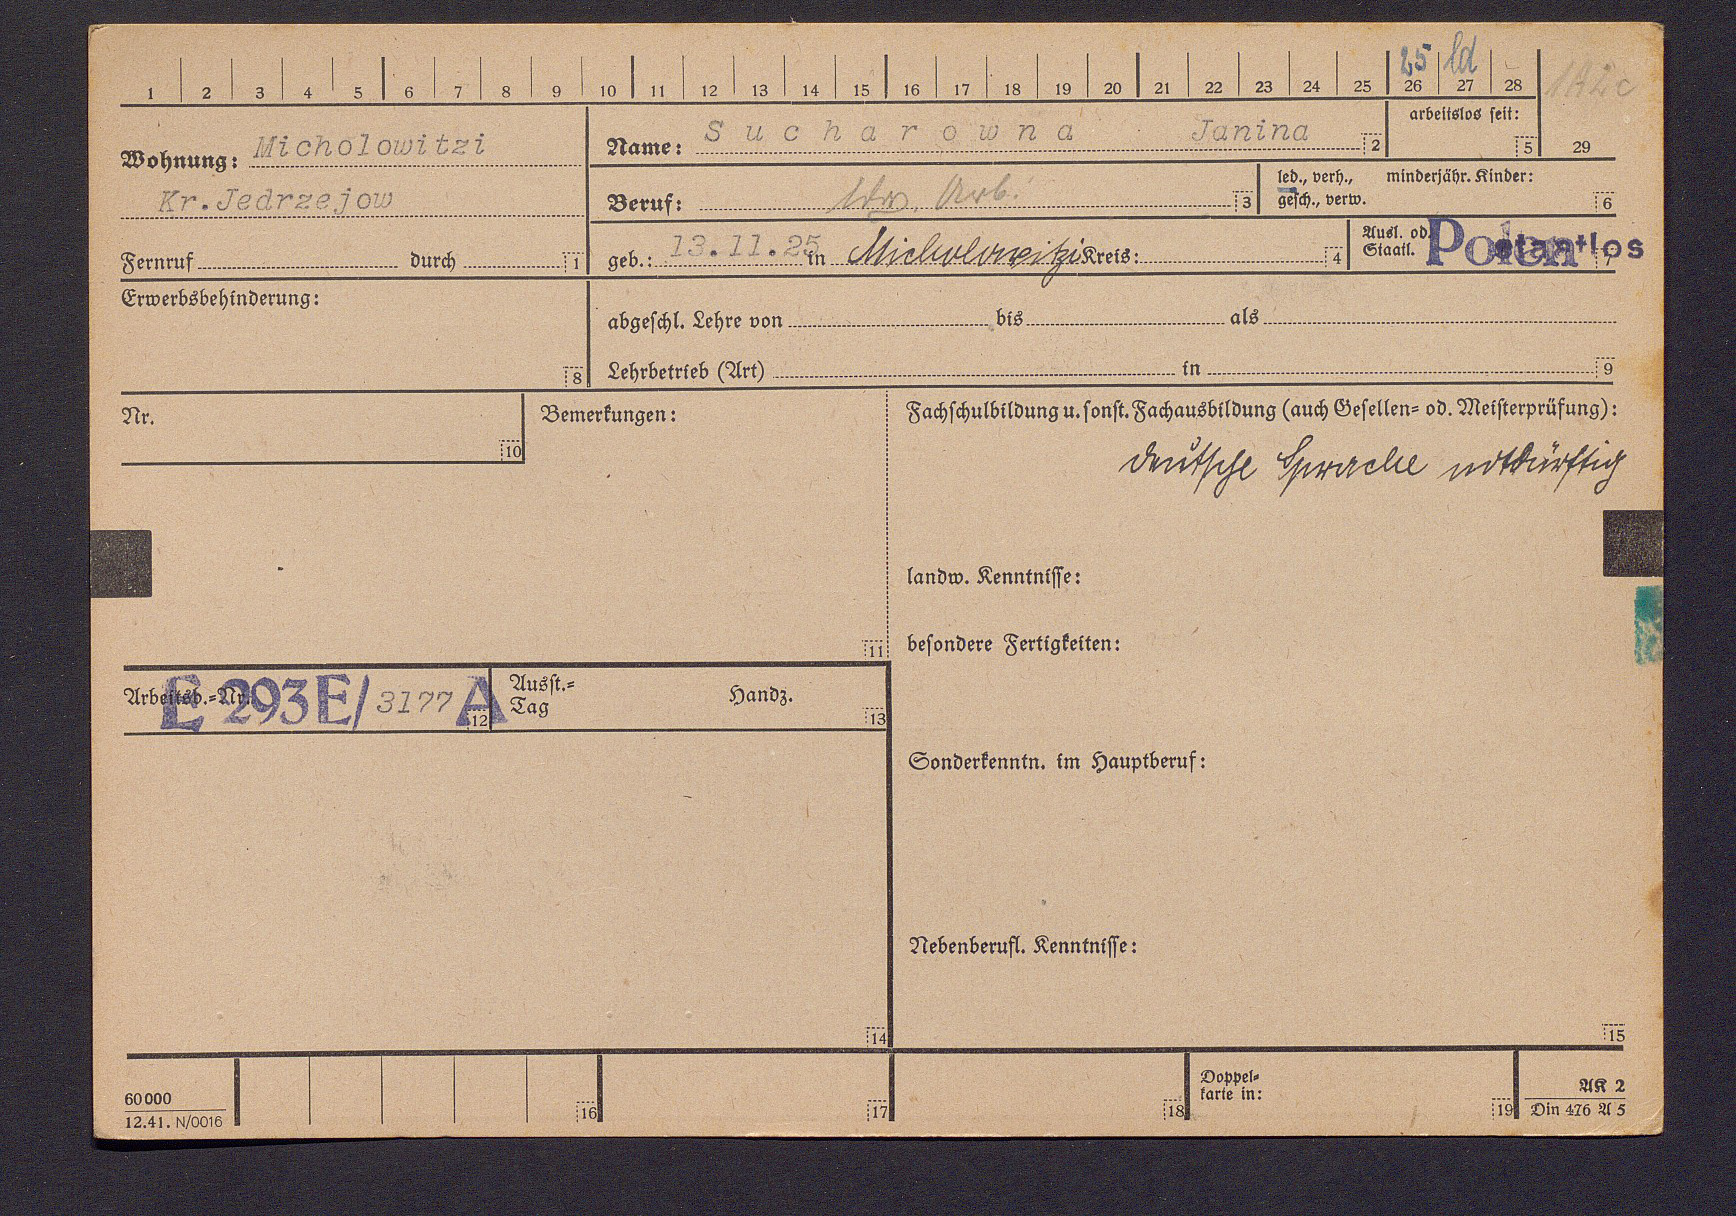 25 ld
1 2 3 4 5 6 7 8 9 10 11 12 13 14 15 16 17 18 19 20 21 22 23 24 25 26 27 28
Wohnung: Micholowitzi
Kr.Jedrzejow
Fernruf durch 1
Name: Sucharowna Janina 2
arbeitslos seit: 5
29
Beruf: Arb. 3
led., verh., minderjähr. Kinder:
gesch., verw. 6
geb.: 13.11.25 in Micholowitzi Kreis: 4
Ausl. od.
Staatl. Polen staatlos 7
Erwerbsbehinderung: 8
abgeschl. Lehre von bis als
Lehrbetrieb (Art) in 9
Nr. 10
Bemerkungen: 11
Fachschulbildung u. sonst. Fachausbildung (auch Gesellen= od. Meisterprüfung):
deutsche Sprache notdürftig
landw. Kenntnisse:
besondere Fertigkeiten:
Arbeitsb.=Nr. E 293E/ 3177 A 12
Ausst.=
Tag Handz. 13
14
Sonderkenntn. im Hauptberuf:
Nebenberufl. Kenntnisse:
15
60000
12.41. N/0016
16 17 18
Doppel=
karte in: 19
AK 2
Din 476 A 5